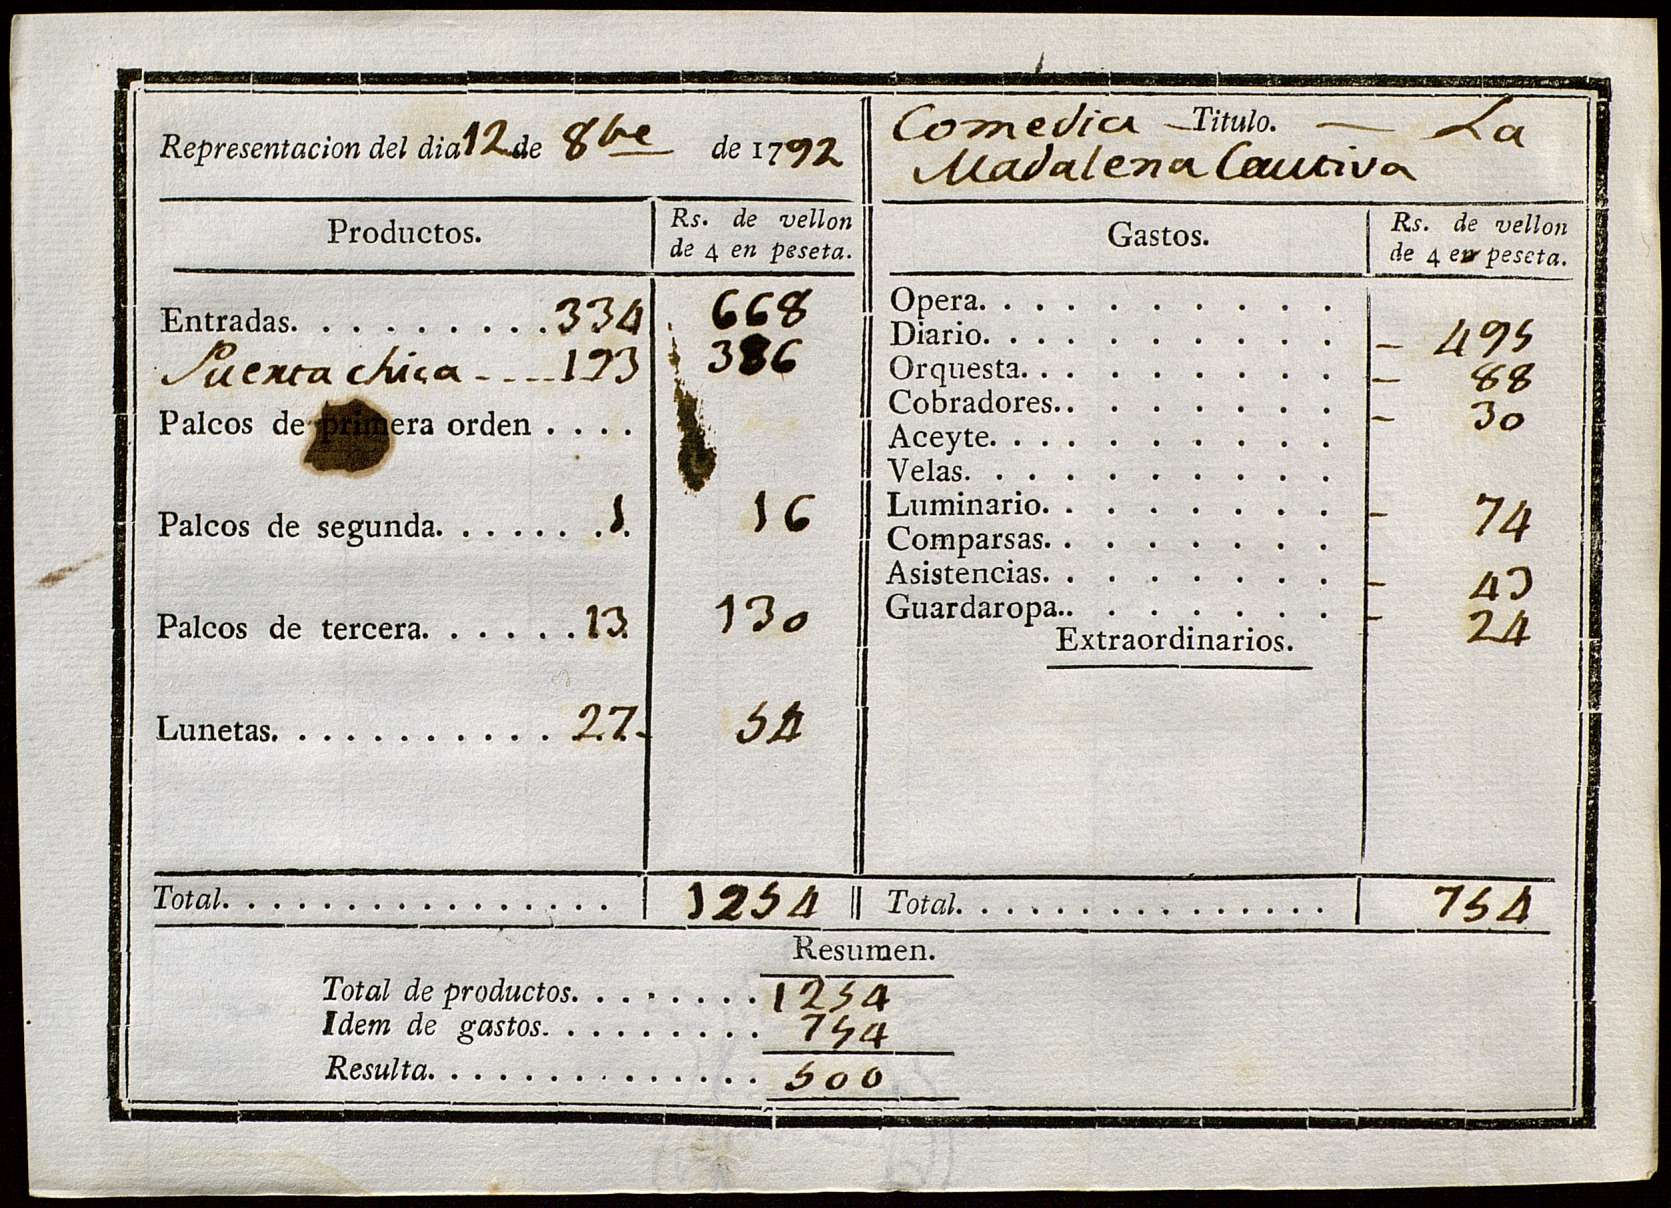 Representacion del dia 12 de 8bre de 1792
Comedia — Titulo. — La
Madalena Cautiva
Productos. Rs. de vellon
de 4 en peseta.
Entradas. . . . . . . . . . 334 668
Puerta chica - - - - 193 386
Palcos de primera orden . . . .
Palcos de segunda. . . . . . . . 1 16
Palcos de tercera. . . . . . 13 130
Lunetas. . . . . . . . . . . . 27 54
Total. . . . . . . . . . . . . . . . . 1254
Gastos. Rs. de vellon
de 4 en peseta.
Opera. . . . . . . . . .
Diario. . . . . . . . . . – 495
Orquesta. . . . . . . . . – 88
Cobradores. . . . . . . . – 30
Aceyte. . . . . . . . . .
Velas. . . . . . . . . .
Luminario. . . . . . . . – 74
Comparsas. . . . . . . .
Asistencias. . . . . . . . – 43
Guardaropa. . . . . . . . – 24
Extraordinarios.
Total. . . . . . . . . . . . . . . . 754
Resumen.
Total de productos. . . . . . . . 1254
Idem de gastos. . . . . . . . . . 754
Resulta. . . . . . . . . . . . . . 500